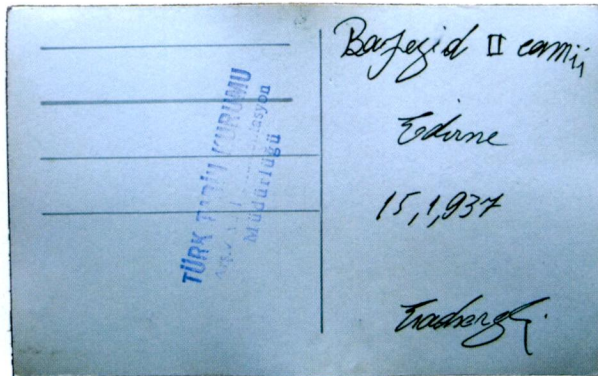 TÜRK TARİH KURUMU
Müdürlüğü
Bayezid II camii
Edirne
15,1,937